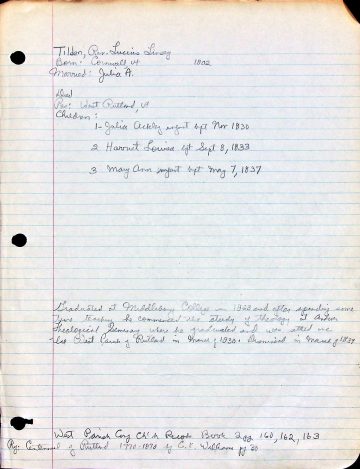 Tilden, Rev. Lucius Linsey
Born: Cornwall Vt 1802
Married: Julia A.
Died
Res: West Rutland, Vt
Children:
1 - Julia Ackley infant bpt Nov 1830
2 Harriet Louisa bpt Sept 8, 1833
3 - Mary Ann infant bpt May 7, 1837
Graduated at Middlebury College in 1823 and after spending some
time teaching he commenced the study of theology at
Theological Seminary where he graduated and was
the West of Rutland in March 1830. Dismissed in March 1839
West Parish Cong Ch'h Records Book 2 pg 160, 162, 163
Centennial of Rutland 1770-1870 by C.K. Williams pg 50